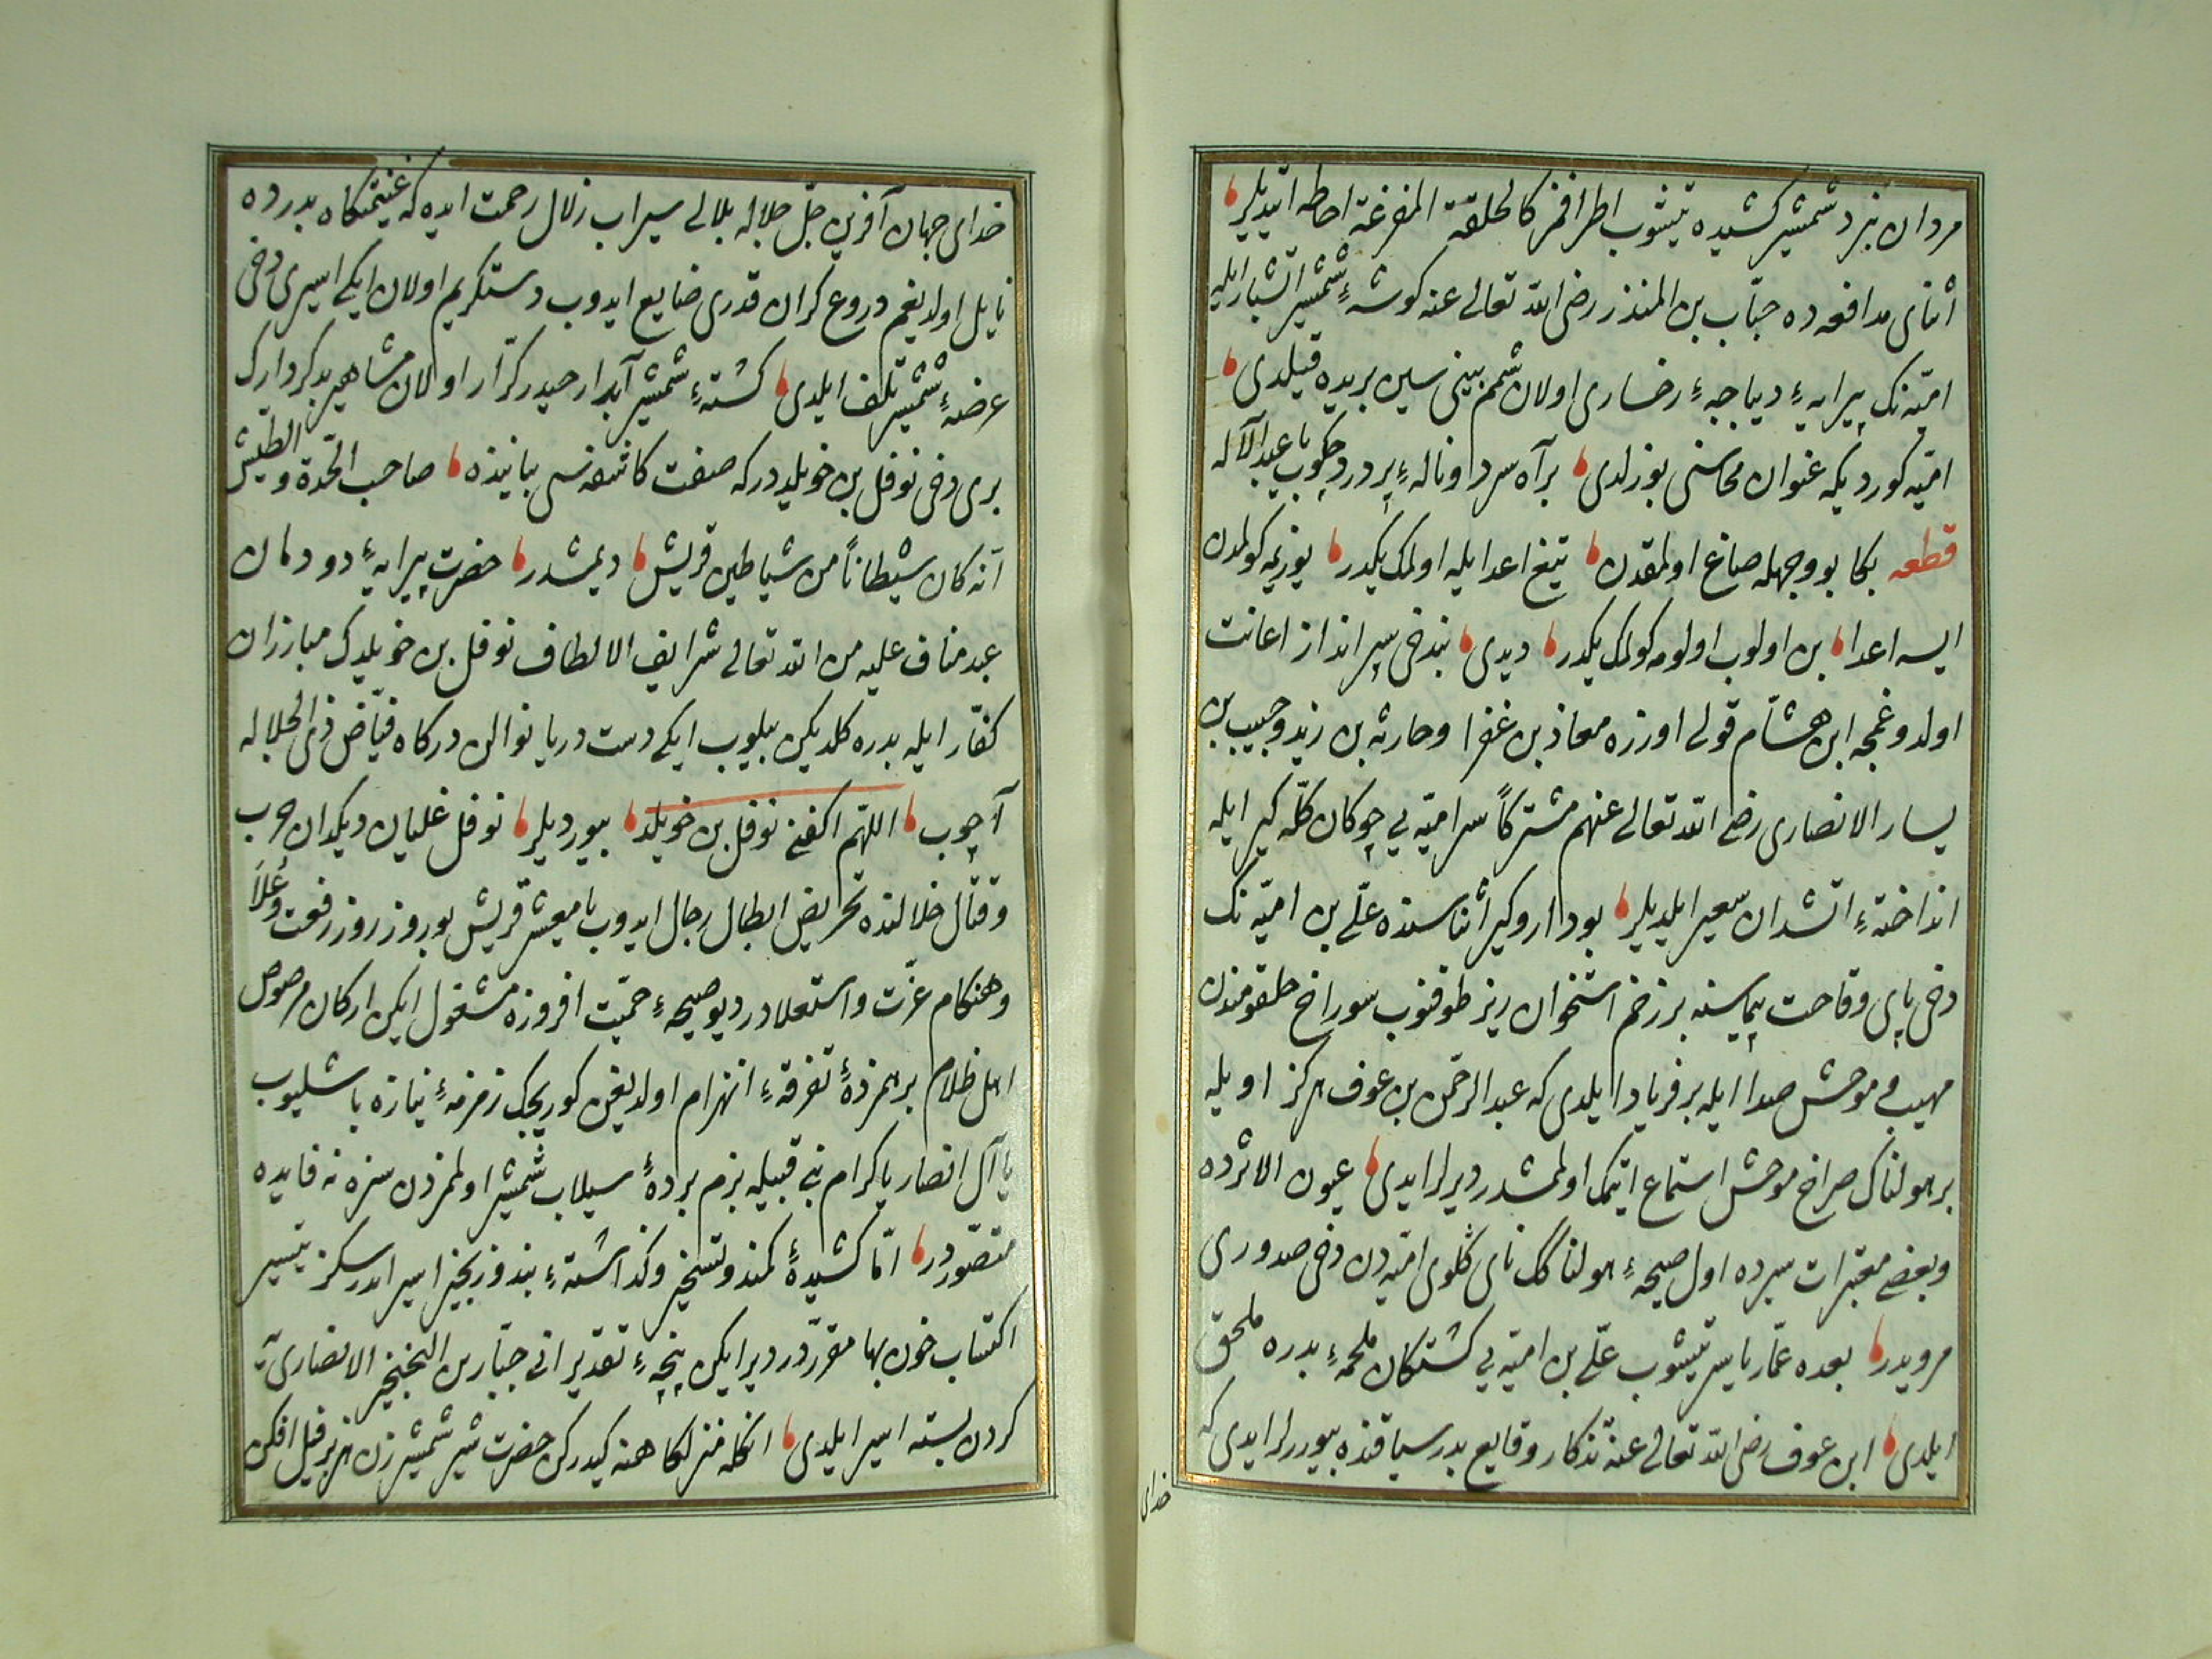 مردان نبرد شمشیر کشیده یتیشوب اطرافمز کالحلقة المفرغة احاطه ایتدیلر
اثنای مدافعه ده حبّاب بن المنذر رضی الله تعالی عنه کوشهٔ شمشیر آتشبار ایله
امیّه نک پیرایهٔ دیباجهٔ رخساری اولان شمم بینی سین بریده قیلدی
امیّه کوردیکه عنوان محاسنی بوزلدی بر آه سرد و نالهٔ پر درد چکوب یا عبد الاله
قطعه بکا بو وجهله صاغ اولمقدن تیغ اعدا ایله اولمک یکدر یوزیمه کولمدن
ایسه اعدا بن اولوب اولومه کولمک یکدر دیدی بندخی سپر انداز اعانت
اولدوغمجه ابن هشام قولی اوزره معاذ بن عفرا و حارثه بن زید و حبیب بن
یسار الانصاری رضی الله تعالی عنهم مشترکاً سر امیّه یی چوکان کلّه کیر ایله
انداختهٔ آتشدان سعیر ایلدیلر بو دار و کیر اثناسنده علی بن امیّه نک
دخی پای وقاحت پیماسنه بر زخم استخوان ریز طوقنوب سوراخ حلقومندن
مهیب و موحش صدا ایله بر فریاد ایلدی که عبد الرحمن بن عوف هرکز اویله
بر هولناک صراخ موحش استماع ایتمک اولمشدر دیرلر ایدی عیون الاثرده
و بعضی معتبرات سیرده اول صیحهٔ هولناک نای کلوی امیّه دن دخی صدوری
مرویدر بعده عمّار یاسر یتیشوب علی بن امیّه یی کشتکان ملحمهٔ بدره ملحق
ایلدی ابن عوف رضی الله تعالی عنه تذکار وقایع بدر سیاقنده بیوررلر ایدی که
خدای
خدای جهان آفرین جلّ جلاله بلالی سیراب زلال رحمت ایده که غنیمتکاه بدرده
نایل اولدیغم دروع کران قدری ضایع ایدوب دستکیرم اولان ایکی اسیری دخی
عرضهٔ شمشیر تلف ایلدی کشتهٔ شمشیر آبدار حیدر کرّار اولان مشاهیر بدکردارک
بری دخی نوفل بن خویلددر که صفت کاشفه سی بیاننده صاحب الحدة و الطیش
انه کان شیطاناً من شیاطین قریش دیمشدر حضرت پیرایهٔ دودمان
عبد مناف علیه من الله تعالی شرایف الالطاف نوفل بن خویلدک مبارزان
کفّار ایله بدره کلدیکن بیلوب ایکی دست دریا نوالن درکاه فیّاض ذی الجلاله
آچوب اللهم اکفنی نوفل بن خویلد بیوردیلر نوفل غلیان دیکدان حرب
و قتال خلالنده تحریض ابطال رجال ایدوب یا معشر قریش بو روز روز رفعت و علا
و هنکام عزّت و استعلادر دیو صیحهٔ حمیّت افروزه مشغول ایکن ارکان مرصوص
اهل ظلام بر همزدهٔ تفرقهٔ انهزام اولدیغن کوریجک زمزمهٔ نیازه باشلیوب
یا آل انصار یا کرام بنی قبیله بزم بردهٔ سیلاب شمشیر اولمزدن سزه نه فایده
متصوّردر امّا کشیدهٔ کمند و تسخیر و کذاشتهٔ بند و زنجیر اسر ایدرسکز تیسیر
اکتساب خون بها مقرّردر دیر ایکن پنجهٔ تقدیر انی جبّار بن الصخر الانصاری یه
کردن بسته اسیر ایلدی انکله منزلکاهنه کیدرکن حضرت شیر شمشیر زن هژبر فیل افکن